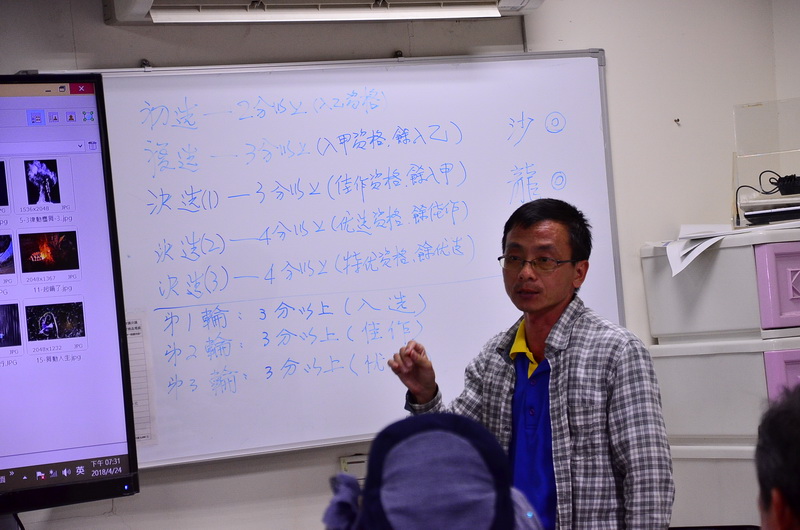 初选—2分以上(入乙资格)
複选—3分以上(入甲资格.餘入乙)
决选(1)—3分以上(佳作资格.餘入甲)
决选(2)—4分以上(优选资格.餘佳作)
决选(3)—4分以上(特优资格.餘优选)
沙◎
龍◎
第1輪:3分以上(入选)
第2輪:3分以上(佳作)
第3輪:3分以上(优
1536x2048 JPG
2048x1367 JPG
2048x1232 JPG
英
下午 07:31
2018/4/24